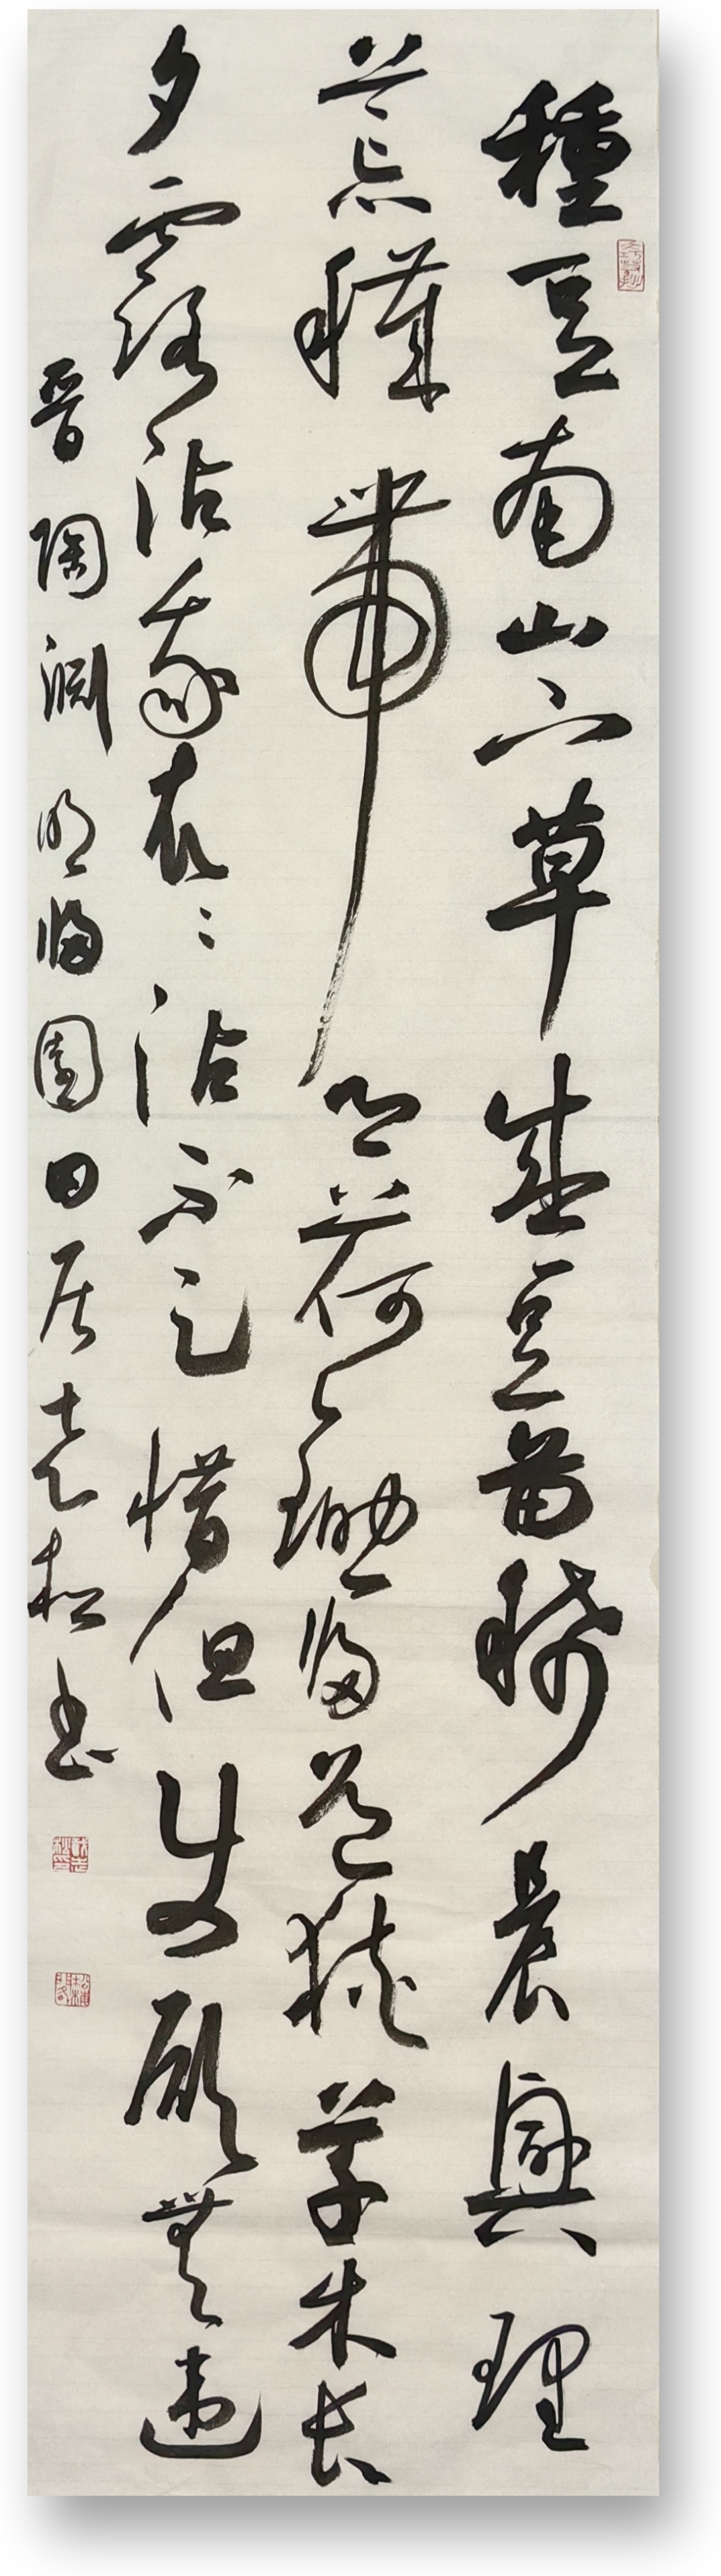 種豆南山下草盛豆苗稀晨興理
荒穢帶月荷鋤歸道狹草木長
夕露沾我衣〻沾不足惜但使願無違
晉陶淵明歸園田居志松書